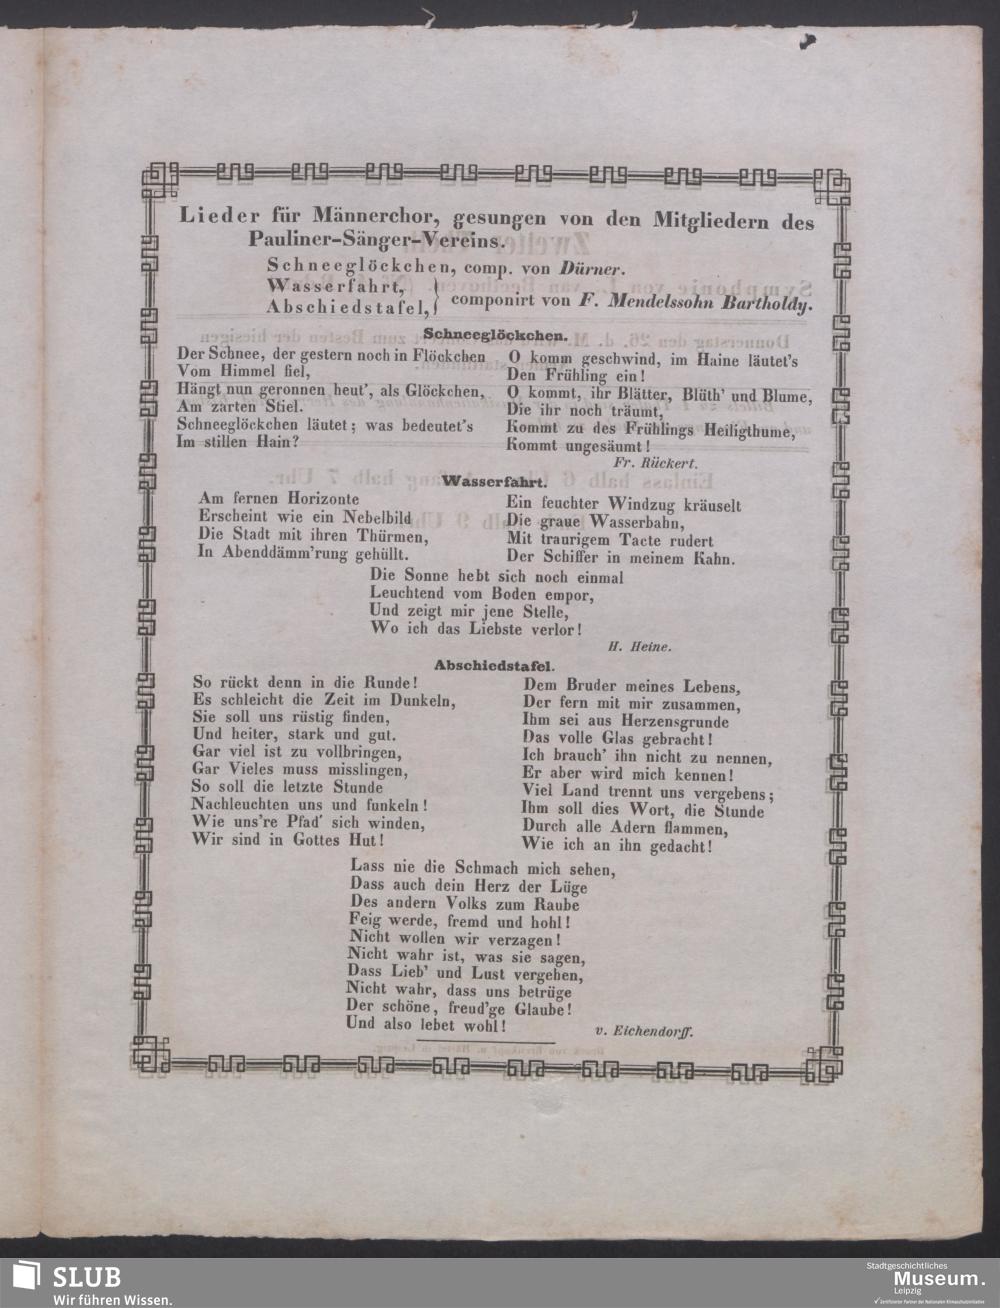 Lieder für Männerchor, gesungen von den Mitgliedern des
Pauliner-Sänger-Vereins.
Schneeglöckchen, comp. von Dürner.
Wasserfahrt,
Abschiedstafel, } componirt von F. Mendelssohn Bartholdy.
Schneeglöckchen.
Der Schnee, der gestern noch in Flöckchen
Vom Himmel fiel,
Hängt nun geronnen heut', als Glöckchen,
Am zarten Stiel.
Schneeglöckchen läutet; was bedeutet's
Im stillen Hain?
O komm geschwind, im Haine läutet's
Den Frühling ein!
O kommt, ihr Blätter, Blüth' und Blume,
Die ihr noch träumt,
Kommt zu des Frühlings Heiligthume,
Kommt ungesäumt!
Fr. Rückert.
Wasserfahrt.
Am fernen Horizonte
Erscheint wie ein Nebelbild
Die Stadt mit ihren Thürmen,
In Abenddämm'rung gehüllt.
Ein feuchter Windzug kräuselt
Die graue Wasserbahn,
Mit traurigem Tacte rudert
Der Schiffer in meinem Kahn.
Die Sonne hebt sich noch einmal
Leuchtend vom Boden empor,
Und zeigt mir jene Stelle,
Wo ich das Liebste verlor!
H. Heine.
Abschiedstafel.
So rückt denn in die Runde!
Es schleicht die Zeit im Dunkeln,
Sie soll uns rüstig finden,
Und heiter, stark und gut.
Gar viel ist zu vollbringen,
Gar Vieles muss misslingen,
So soll die letzte Stunde
Nachleuchten uns und funkeln!
Wie uns're Pfad' sich winden,
Wir sind in Gottes Hut!
Dem Bruder meines Lebens,
Der fern mit mir zusammen,
Ihm sei aus Herzensgrunde
Das volle Glas gebracht!
Ich brauch' ihn nicht zu nennen,
Er aber wird mich kennen!
Viel Land trennt uns vergebens;
Ihm soll dies Wort, die Stunde
Durch alle Adern flammen,
Wie ich an ihn gedacht!
Lass nie die Schmach mich sehen,
Dass auch dein Herz der Lüge
Des andern Volks zum Raube
Feig werde, fremd und hohl!
Nicht wollen wir verzagen!
Nicht wahr ist, was sie sagen,
Dass Lieb' und Lust vergehen,
Nicht wahr, dass uns betrüge
Der schöne, freud'ge Glaube!
Und also lebet wohl!
v. Eichendorff.
SLUB
Wir führen Wissen.
Stadtgeschichtliches
Museum.
Leipzig
Zertifizierter Partner der Nationalen Klimaschutzinitiative